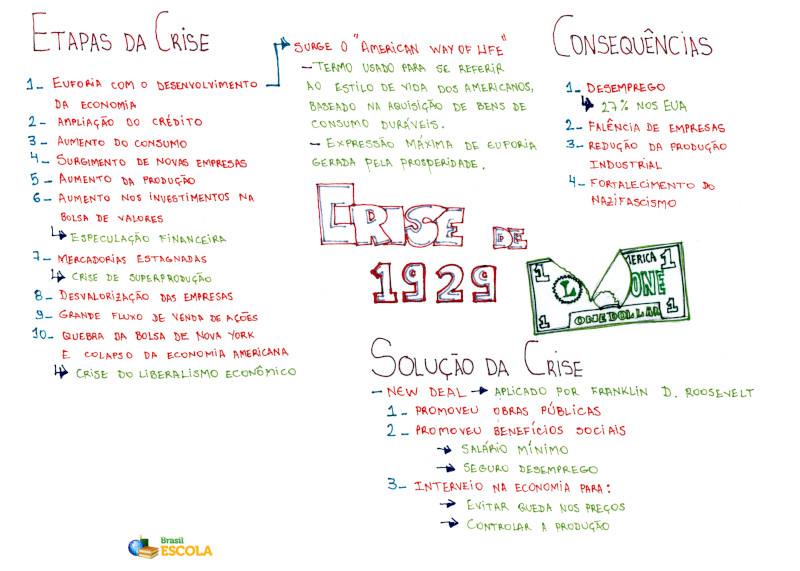 ETAPAS DA CRISE
1- EUFORIA COM O DESENVOLVIMENTO
DA ECONOMIA
2- AMPLIAÇÃO DO CRÉDITO
3- AUMENTO DO CONSUMO
4- SURGIMENTO DE NOVAS EMPRESAS
5- AUMENTO DA PRODUÇÃO
6- AUMENTO NOS INVESTIMENTOS NA
BOLSA DE VALORES
ESPECULAÇÃO FINANCEIRA
7- MERCADORIAS ESTAGNADAS
CRISE DE SUPERPRODUÇÃO
8- DESVALORIZAÇÃO DAS EMPRESAS
9- GRANDE FLUXO DE VENDA DE AÇÕES
10- QUEBRA DA BOLSA DE NOVA YORK
E COLAPSO DA ECONOMIA AMERICANA
CRISE DO LIBERALISMO ECONÔMICO
SURGE O "AMERICAN WAY OF LIFE"
- TERMO USADO PARA SE REFERIR
AO ESTILO DE VIDA DOS AMERICANOS,
BASEADO NA AQUISIÇÃO DE BENS DE
CONSUMO DURÁVEIS.
- EXPRESSÃO MÁXIMA DE EUFORIA
GERADA PELA PROSPERIDADE.
CONSEQUÊNCIAS
1- DESEMPREGO
27% NOS EUA
2- FALÊNCIA DE EMPRESAS
3- REDUÇÃO DA PRODUÇÃO
INDUSTRIAL
4- FORTALECIMENTO DO
NAZIFASCISMO
CRISE DE
1929
1 MERICA 1
L ONE
1 ONE DOLLAR 1
SOLUÇÃO DA CRISE
- NEW DEAL → APLICADO POR FRANKLIN D. ROOSEVELT
1- PROMOVEU OBRAS PÚBLICAS
2- PROMOVEU BENEFÍCIOS SOCIAIS
→ SALÁRIO MÍNIMO
→ SEGURO DESEMPREGO
3- INTERVEIO NA ECONOMIA PARA:
→ EVITAR QUEDA NOS PREÇOS
→ CONTROLAR A PRODUÇÃO
Brasil
ESCOLA